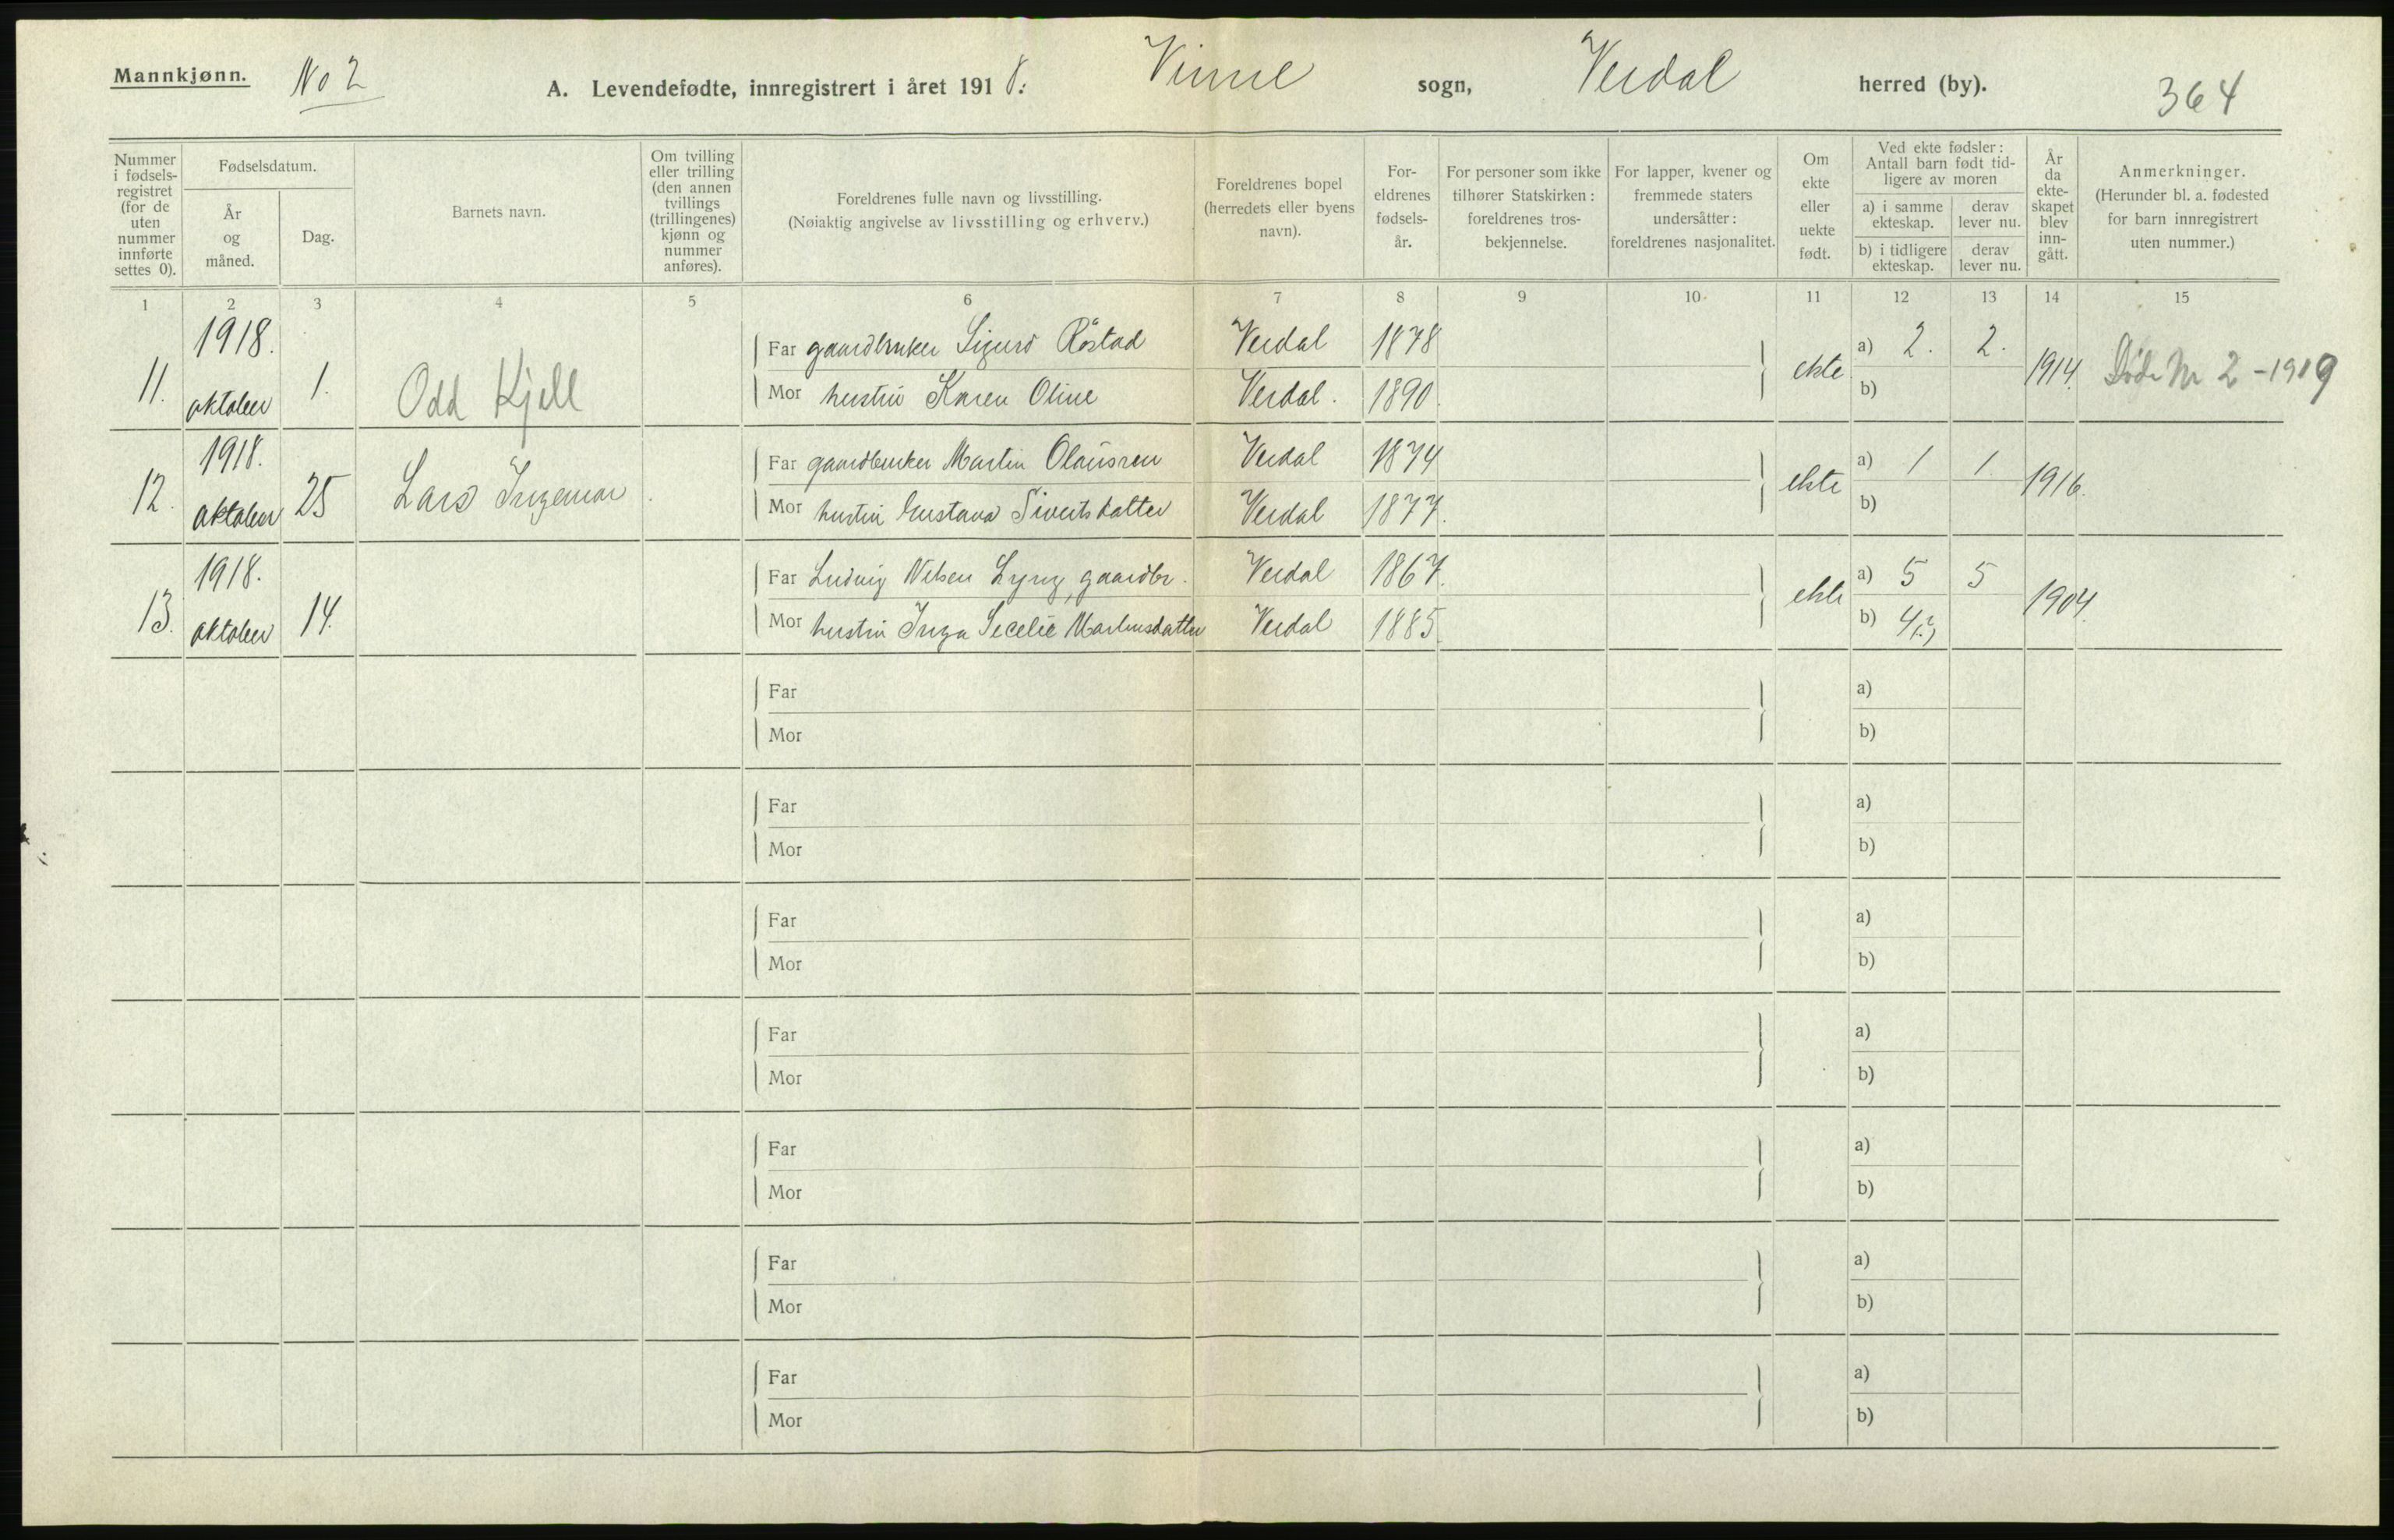 Mannkjønn. No 2 A. Levendefødte, innregistrert i året 1918. Vinne sogn, Verdal herred (by). 364
Nummer i fødsels-registret (for de uten nummer innførte settes 0).
Fødselsdatum.
År og måned.
Dag.
Barnets navn.
Om tvilling eller trilling (den annen tvillings (trillingenes) kjønn og nummer anføres).
Foreldrenes fulle navn og livsstilling.
(Nøiaktig angivelse av livsstilling og erhverv.)
Foreldrenes bopel (herredets eller byens navn).
For-eldrenes fødsels-år.
For personer som ikke tilhører Statskirken: foreldrenes tros-bekjennelse.
For lapper, kvener og fremmede staters undersåtter: foreldrenes nasjonalitet.
Om ekte eller uekte født.
Ved ekte fødsler: Antall barn født tid-ligere av moren
a) i samme ekteskap.
derav lever nu.
b) i tidligere ekteskap.
derav lever nu.
År da ekte-skapet blev inn-gått.
Anmerkninger.
(Herunder bl. a. fødested for barn innregistrert uten nummer.)
1 2 3 4 5 6 7 8 9 10 11 12 13 14 15
11. 1918. oktober 1. Odd Kjell
Far gaardbruker Sigurd Råstad Verdal 1878
Mor hustru Karen Oline Verdal. 1890.
ekte a) 2. 2. b) 1914. Døde Nr 2 - 1919
12. 1918. oktober 25 Lars Ingemar
Far gaardbruker Martin Olausren Verdal 1874
Mor hustru Gustava Sivertsdatter Verdal 1877.
ekte a) 1 1. b) 1916.
13. 1918. oktober 14.
Far Ludvig Nelsen Lyng, gaardbr. Verdal 1867.
Mor hustru Inga Secelie Martinsdatter Verdal 1885.
ekte a) 5 5 b) 4(?) 1904.
Far a)
Mor b)
Far a)
Mor b)
Far a)
Mor b)
Far a)
Mor b)
Far a)
Mor b)
Far a)
Mor b)
Far a)
Mor b)